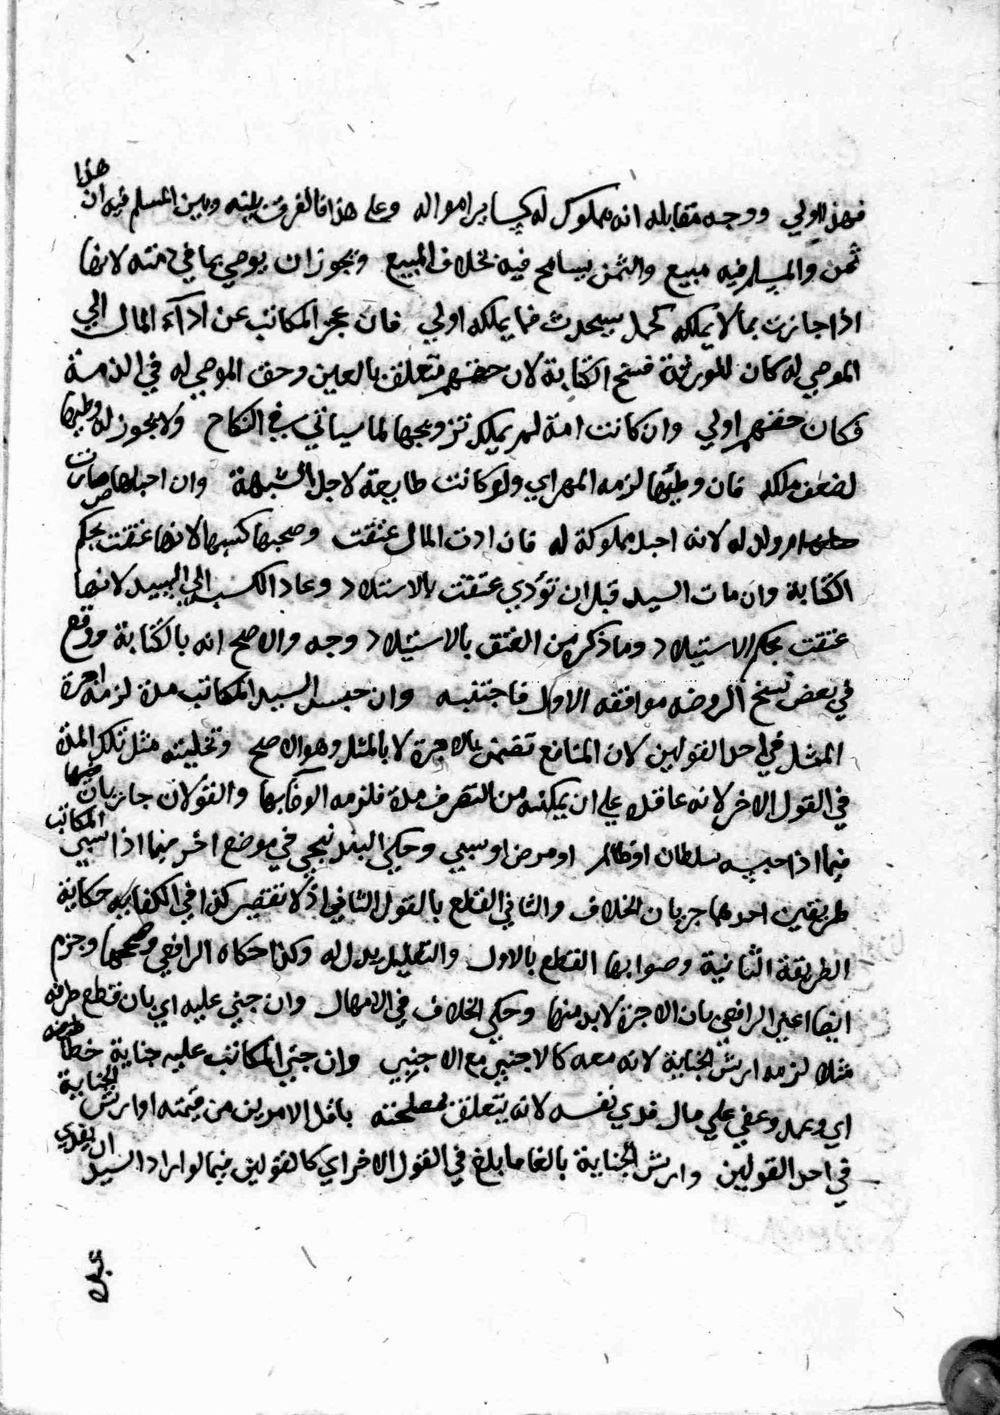 فهذا اولي ووجه مقابله انه مملوك له كساير امواله وعلى هذا فالفرق بينه وبين المسلم فيه ان هذا
ثمن والمسلم فيه مبيع والثمن يسامح فيه بخلاف المبيع ويجوز ان يوصي بما في ذمته لانها
اذا جازت بما لا يملكه كحمل سيحدث فما يملكه اولي فان عجز المكاتب عن ادآء المال الي
الموصي له كان للورثة فسخ الكتابة لان حقهم متعلق بالعين وحق الموصي له في الذمة
فكان حقهم اولي وان كانت امة لم يملك تزويجها لما سياتي في النكاح ولا يجوز له وطيها
لضعف ملكه فان وطئها لزمه المهر اي ولو كانت طايعة لاجل الشبهة وان احبلها صارت
ام ولد له لانه احبل مملوكة له فان ادت المال عتقت وصحبها كسبها لانها عتقت بحكم
الكتابة وان مات السيد قبل ان تؤدي عتقت بالاستيلاد وعاد الكسب الي السيد لانها
عتقت بحكم الاستيلاد وما ذكره من العتق بالاستيلاد وجه والاصح انه بالكتابة ووقع
في بعض نسخ الروضه موافقه الاول فاجتنبه وان حبس السيد المكاتب مدة لزمه اجرة
المثل في احد القولين لان المنافع تضمن بالاجرة لا بالمثل وهو الاصح وتخليته مثل تلك المدة
في القول الاخر لانه عاقد علي ان يمكنه من التصرف مدة فلزمه الوفا بها والقولان جاريان
فيما اذا حبسه سلطان او ظالم او مرض او سبي وحكي البندنيجي في موضع اخر فيما اذا سبي المكاتب
طريقين احدهما جريان الخلاف والثاني القطع بالقول الثاني اذ لا تقصير كذا في الكفايه حكاية
الطريقة الثانية وصوابها القطع بالاول والتعليل يدل له وكذا حكاه الرافعي وصححها وجزم
ايضا اعني الرافعي بان الاجرة لابد منها وحكي الخلاف في الامهال وان جني عليه اي بان قطع طرفه
مثلا لزمه ارش الجناية لانه معه كالاجنبي مع الاجنبي وان جني المكاتب عليه جناية خطا
اي وعمد وعفي علي مال فدي نفسه لانه يتعلق بمصلحته باقل الامرين من قيمته او ارش الجناية
في احد القولين وارش الجناية بالغا ما بلغ في القول الاخر اي كالقولين فيما لو اراد السيد ان يفدي